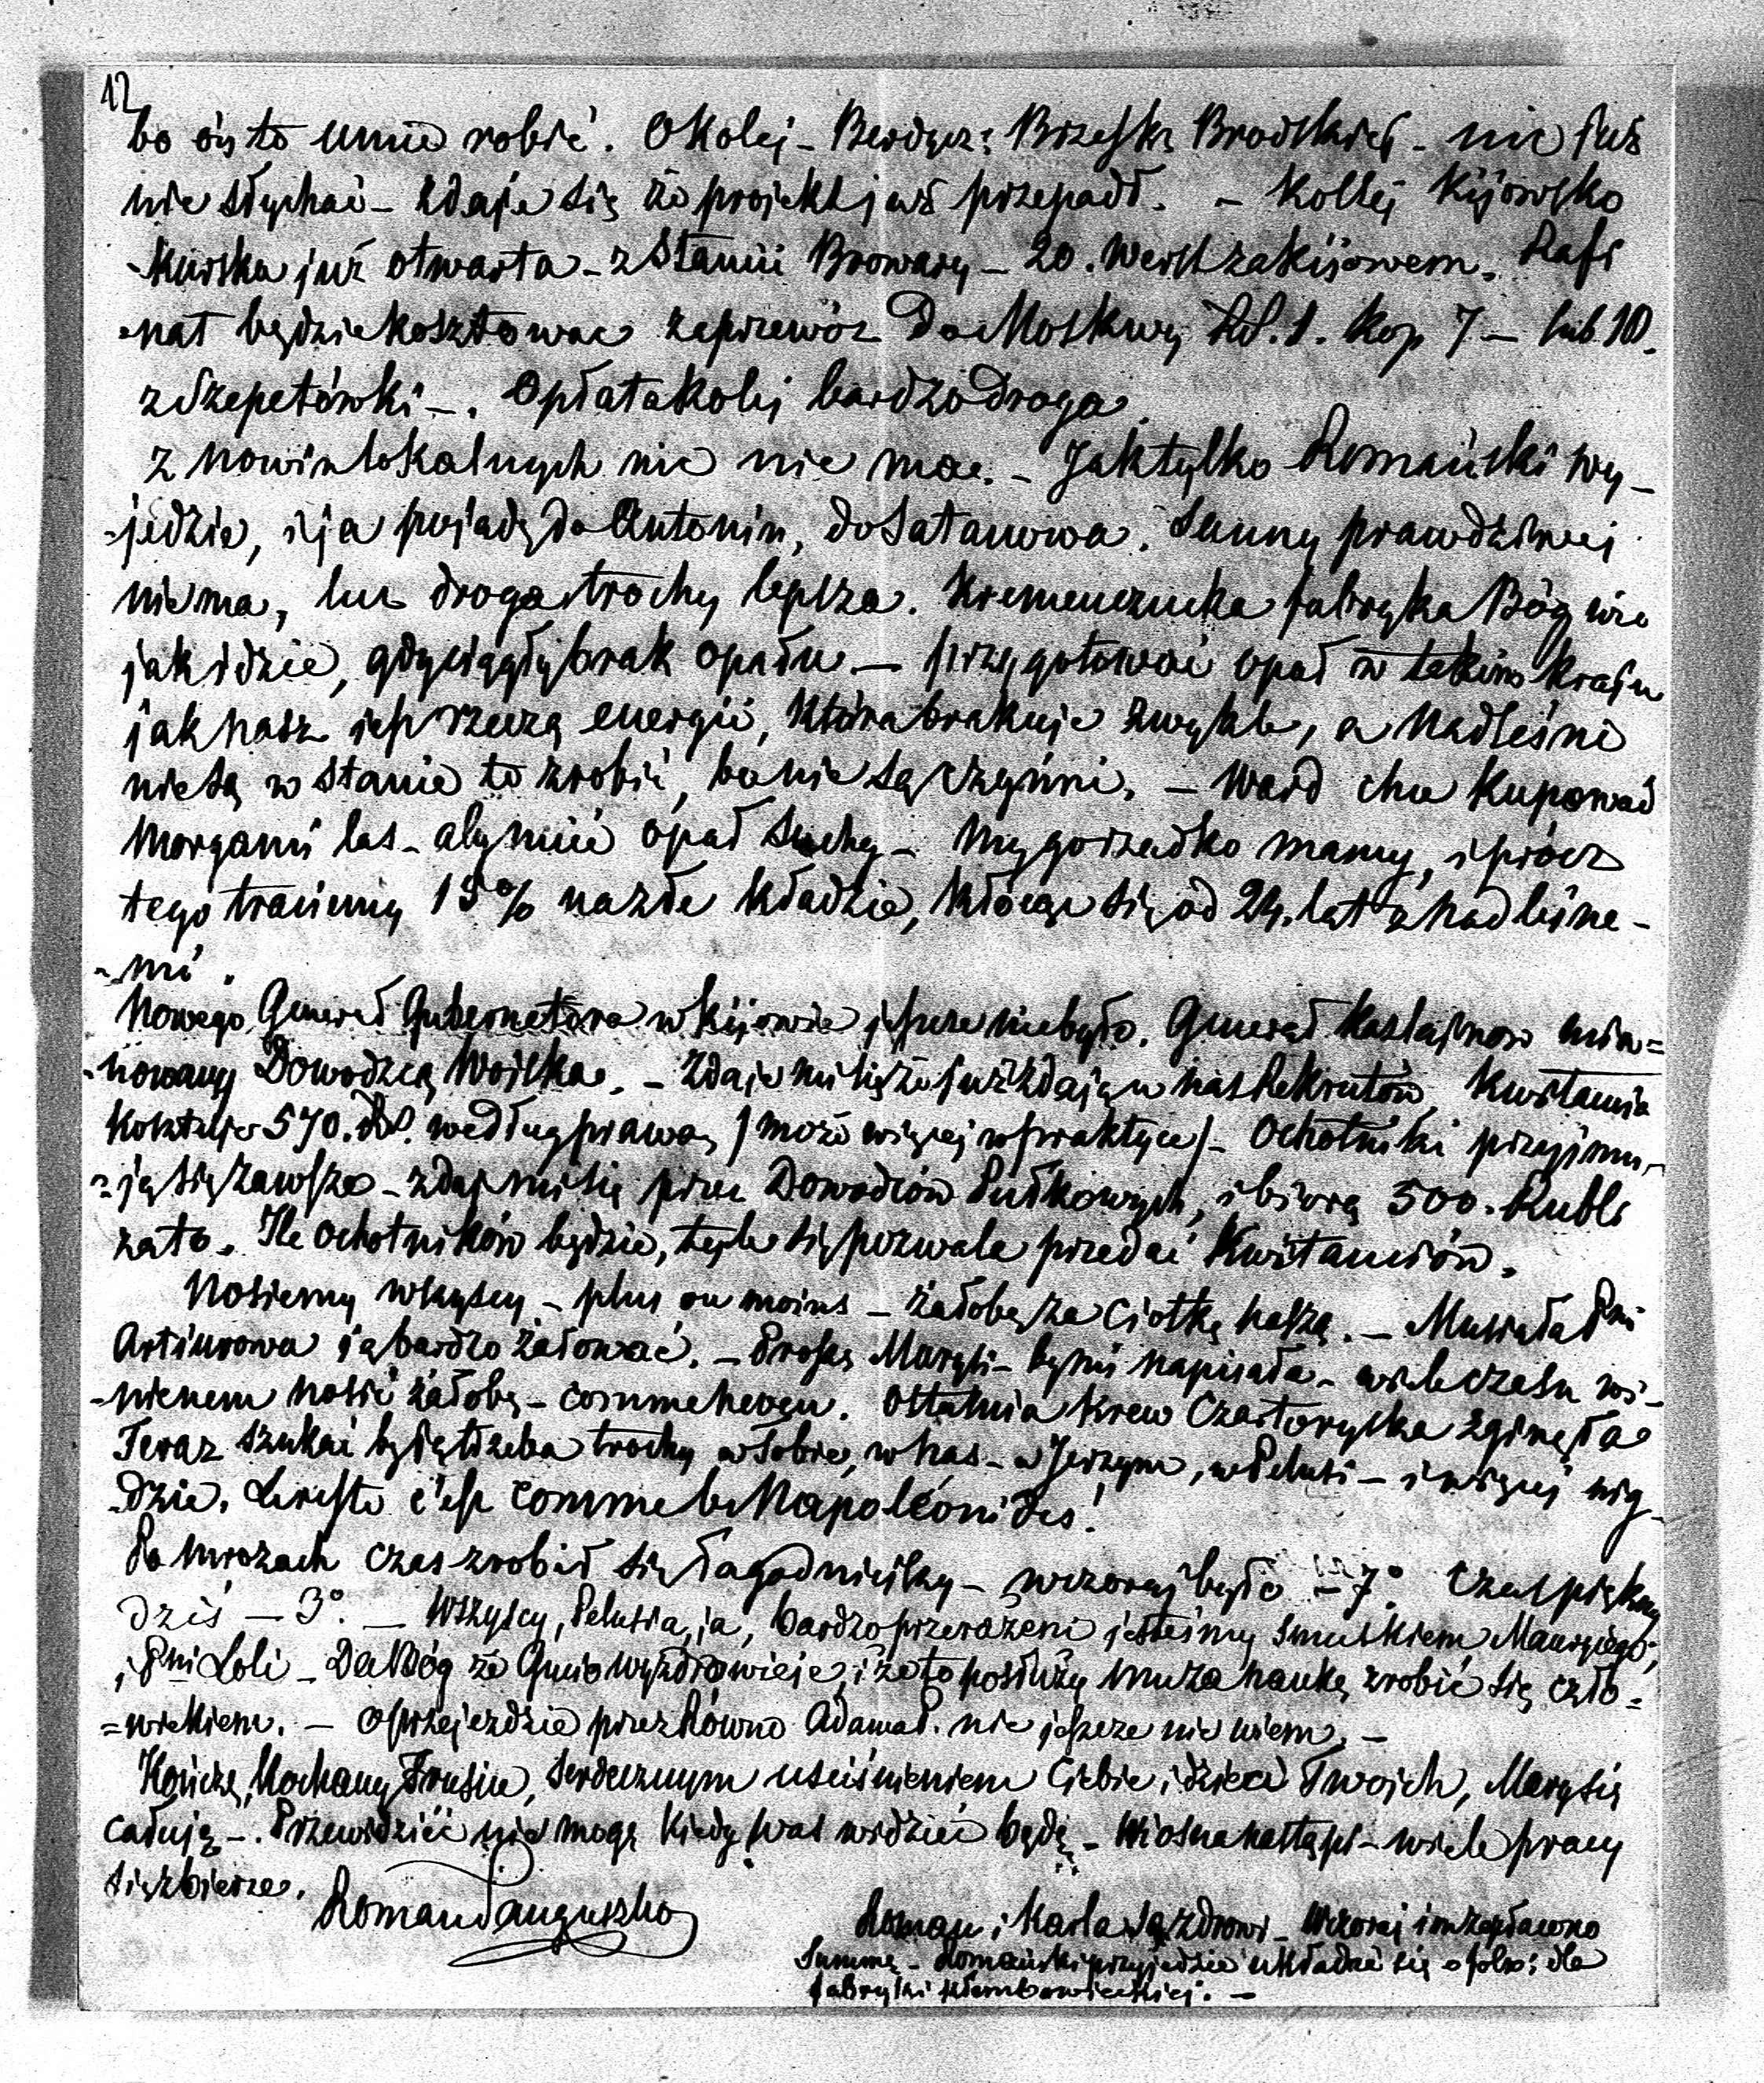 12
bo on to umie robić. O Kolej - Berdycz: Brzesko Brodskiej - nic już
nie słychać - zdaje się że projekt już przepadł. - Kolej Kijowsko
-Kurska już otwarta - z Stanii Browary - 20. Werst za Kijowem. Rafi
-nat będzie kosztować za przewóz do Moskwy RS. 1. Kop 7 - lub 10.
z Szepetówki -. Opłata Kolej bardzo droga.
z nowin lokalnych nic nie ma. - Jak tylko Romański wy-
-jedzie, i ja pojadę do Antonin, do Satanowa. Sanny prawdziwej
nie ma, lecz droga trochę lepsza. Kremenczucka fabryka Bóg wie
jak idzie, gdy ciągły brak opału - przygotować opał w takim kraju
jak nasz jest rzeczą energii, która brakuje zwykle, a Nadleśni
nie są w stanie to zrobić, bo nie są czynni. - Ward chce kupować
Morgami las - aby mieć opał suchy - My go rzadko mamy, i prócz
tego tracimy 15% na źle kładzie, kłócę się od 24. lat z nadleśne-
-mi.
Nowego Generał Gubernatora w Kijowie jeszcze nie było. Generał mia=
-nowany Dowodzcą Wojska. - Zdaje mi się że już zdają u nas Rekrutów. Kwitancja
Kosztuje 570. RS. według prawa, / może więcej w praktyce / - Ochotniki przyjmu-
=ją się zawsze - zdaje mi się przez Dowodców Pułkowych, i biorą 500. Rubli
za to. Ile ochotników będzie, tyle się pozwala przedać Kwitanciów.
Nosiemy wszyscy - plus ou moins - żałobę za Ciotkę naszą. - Musiała Pni
Arturowa ją bardzo żałować. - Proszę Marysi - by mi napisała - wiele czasu wi-
-nienem nosić żałobę - comme neveu. Ostatnia Krew Czartoryska zginęła
Teraz szukać by się trzeba trochę w sobie, w nas - w Jerzym, w Pelusi - i więcej nig-
-dzie. Le reste c'est comme les Napoléonides!
Po mrozach czas zrobił się łagodniejszy - wczoraj było - 7° Czas piękny
dziś - 3°. - Wszyscy, Pelusia, ja, bardzo przerażeni jesteśmy smutkiem Maurycego,
i Pni Loli - Da Bóg że Gucio wyzdrowieje, i że to posłuży mu za naukę zrobić się czło=
=wiekiem. - O przejezdzie przez Równo Adama P. nic jeszcze nie wiem. -
Kończę, Kochany Frusiu, serdecznym uściśnieniem Ciebie i dzieci Twoich, Marysię
całuję -. Przewidzieć nie mogę kiedy was widzieć będę - Wiosna nastąpi - wiele pracy
się zbierze.
Roman Sanguszko
Roman i Karla są zdrowi - Wczoraj im zapłacono
Summę - Romański przyjedzie układać się o dla
fabryki Klembowieckiej. -